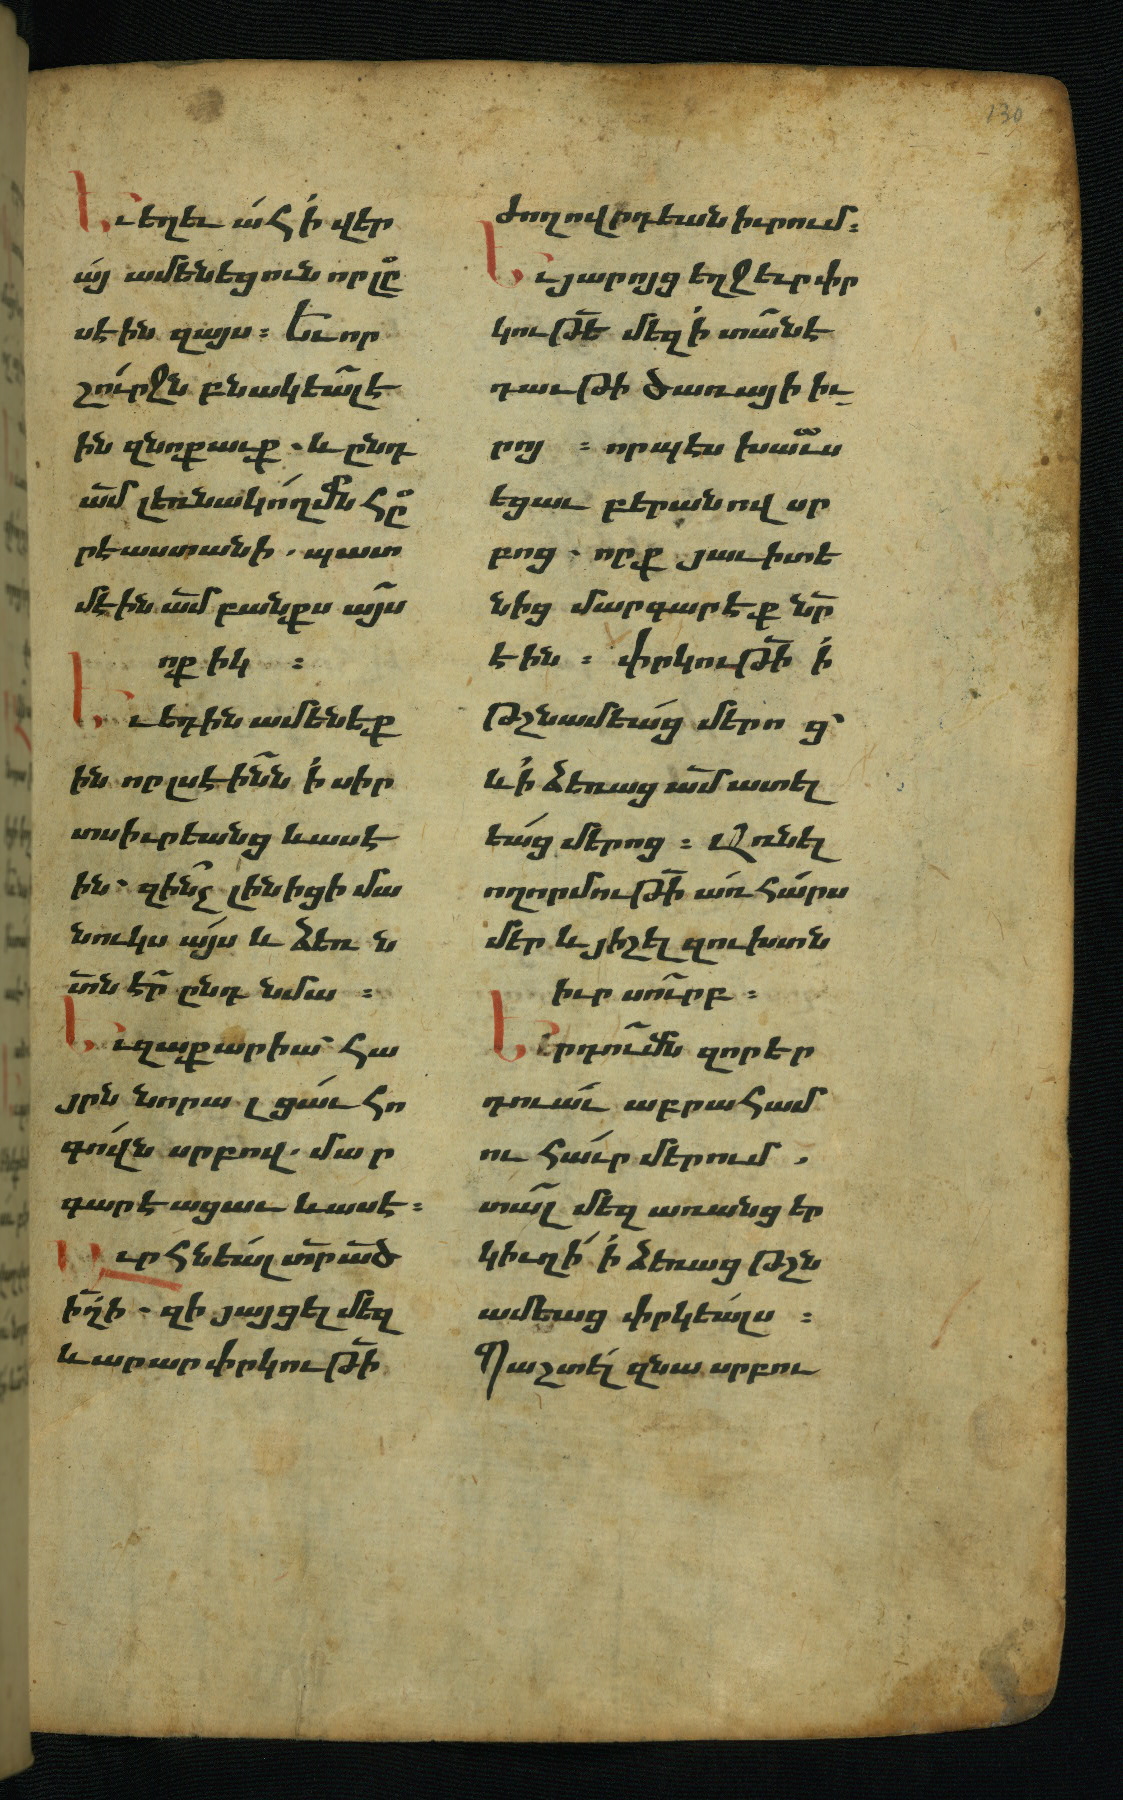 130
Եւ եղեւ ահ ի վեր
այ ամենեցուն որ լը
սէին զայս։ Եւ որ
շուրջն բնակեալ է
ին զնոքաւք. և ընդ
ամ լեռնակողմն Հը
րէաստանի. պատ
մէին ամ բանքս այս
ոքիկ ։
Եւ եդին ամենեք
ին որ լսէինն ի սիր
տս իւրեանց և ասէ
ին՝ զինչ լինիցի մա
նուկս այս և ձեռ ն
տն էր ընդ նմա ։
Եւ զաքարիա՝ Հա
յրն նորա լցաւ Հո
գովն սրբով. մար
գարէացաւ և ասէ։
ԱւրՀնեալ տր ած
իղի. զի յայց ել մեզ
և արար փրկութի
ժողովրդեան իւրում։
Եւ յարոյց եղջեւր փր
կութե մեզ ի տանէ
դաւթի ծառայի իւ
րոյ ։ որպէս խաւս
եցաւ բերանով սր
բոց. որք յաւիտե
նից մարգարէք նր
էին ։ փրկութի ի
թշնամեաց մերոց՝
և ի ձեռաց ամ ատել
եաց մերոց ։ Առնել
ողորմութի առ Հարս
մեր և յիշել զուխտն
իւր սուրբ ։
Երդումն զոր եր
դուաւ աբրաՀամ
ու Հաւր մերում .
տալ մեզ առանց եր
կիւղի՝ ի ձեռաց թշն
ամեաց փրկեալս ։
Պաշտել զնա սրբու